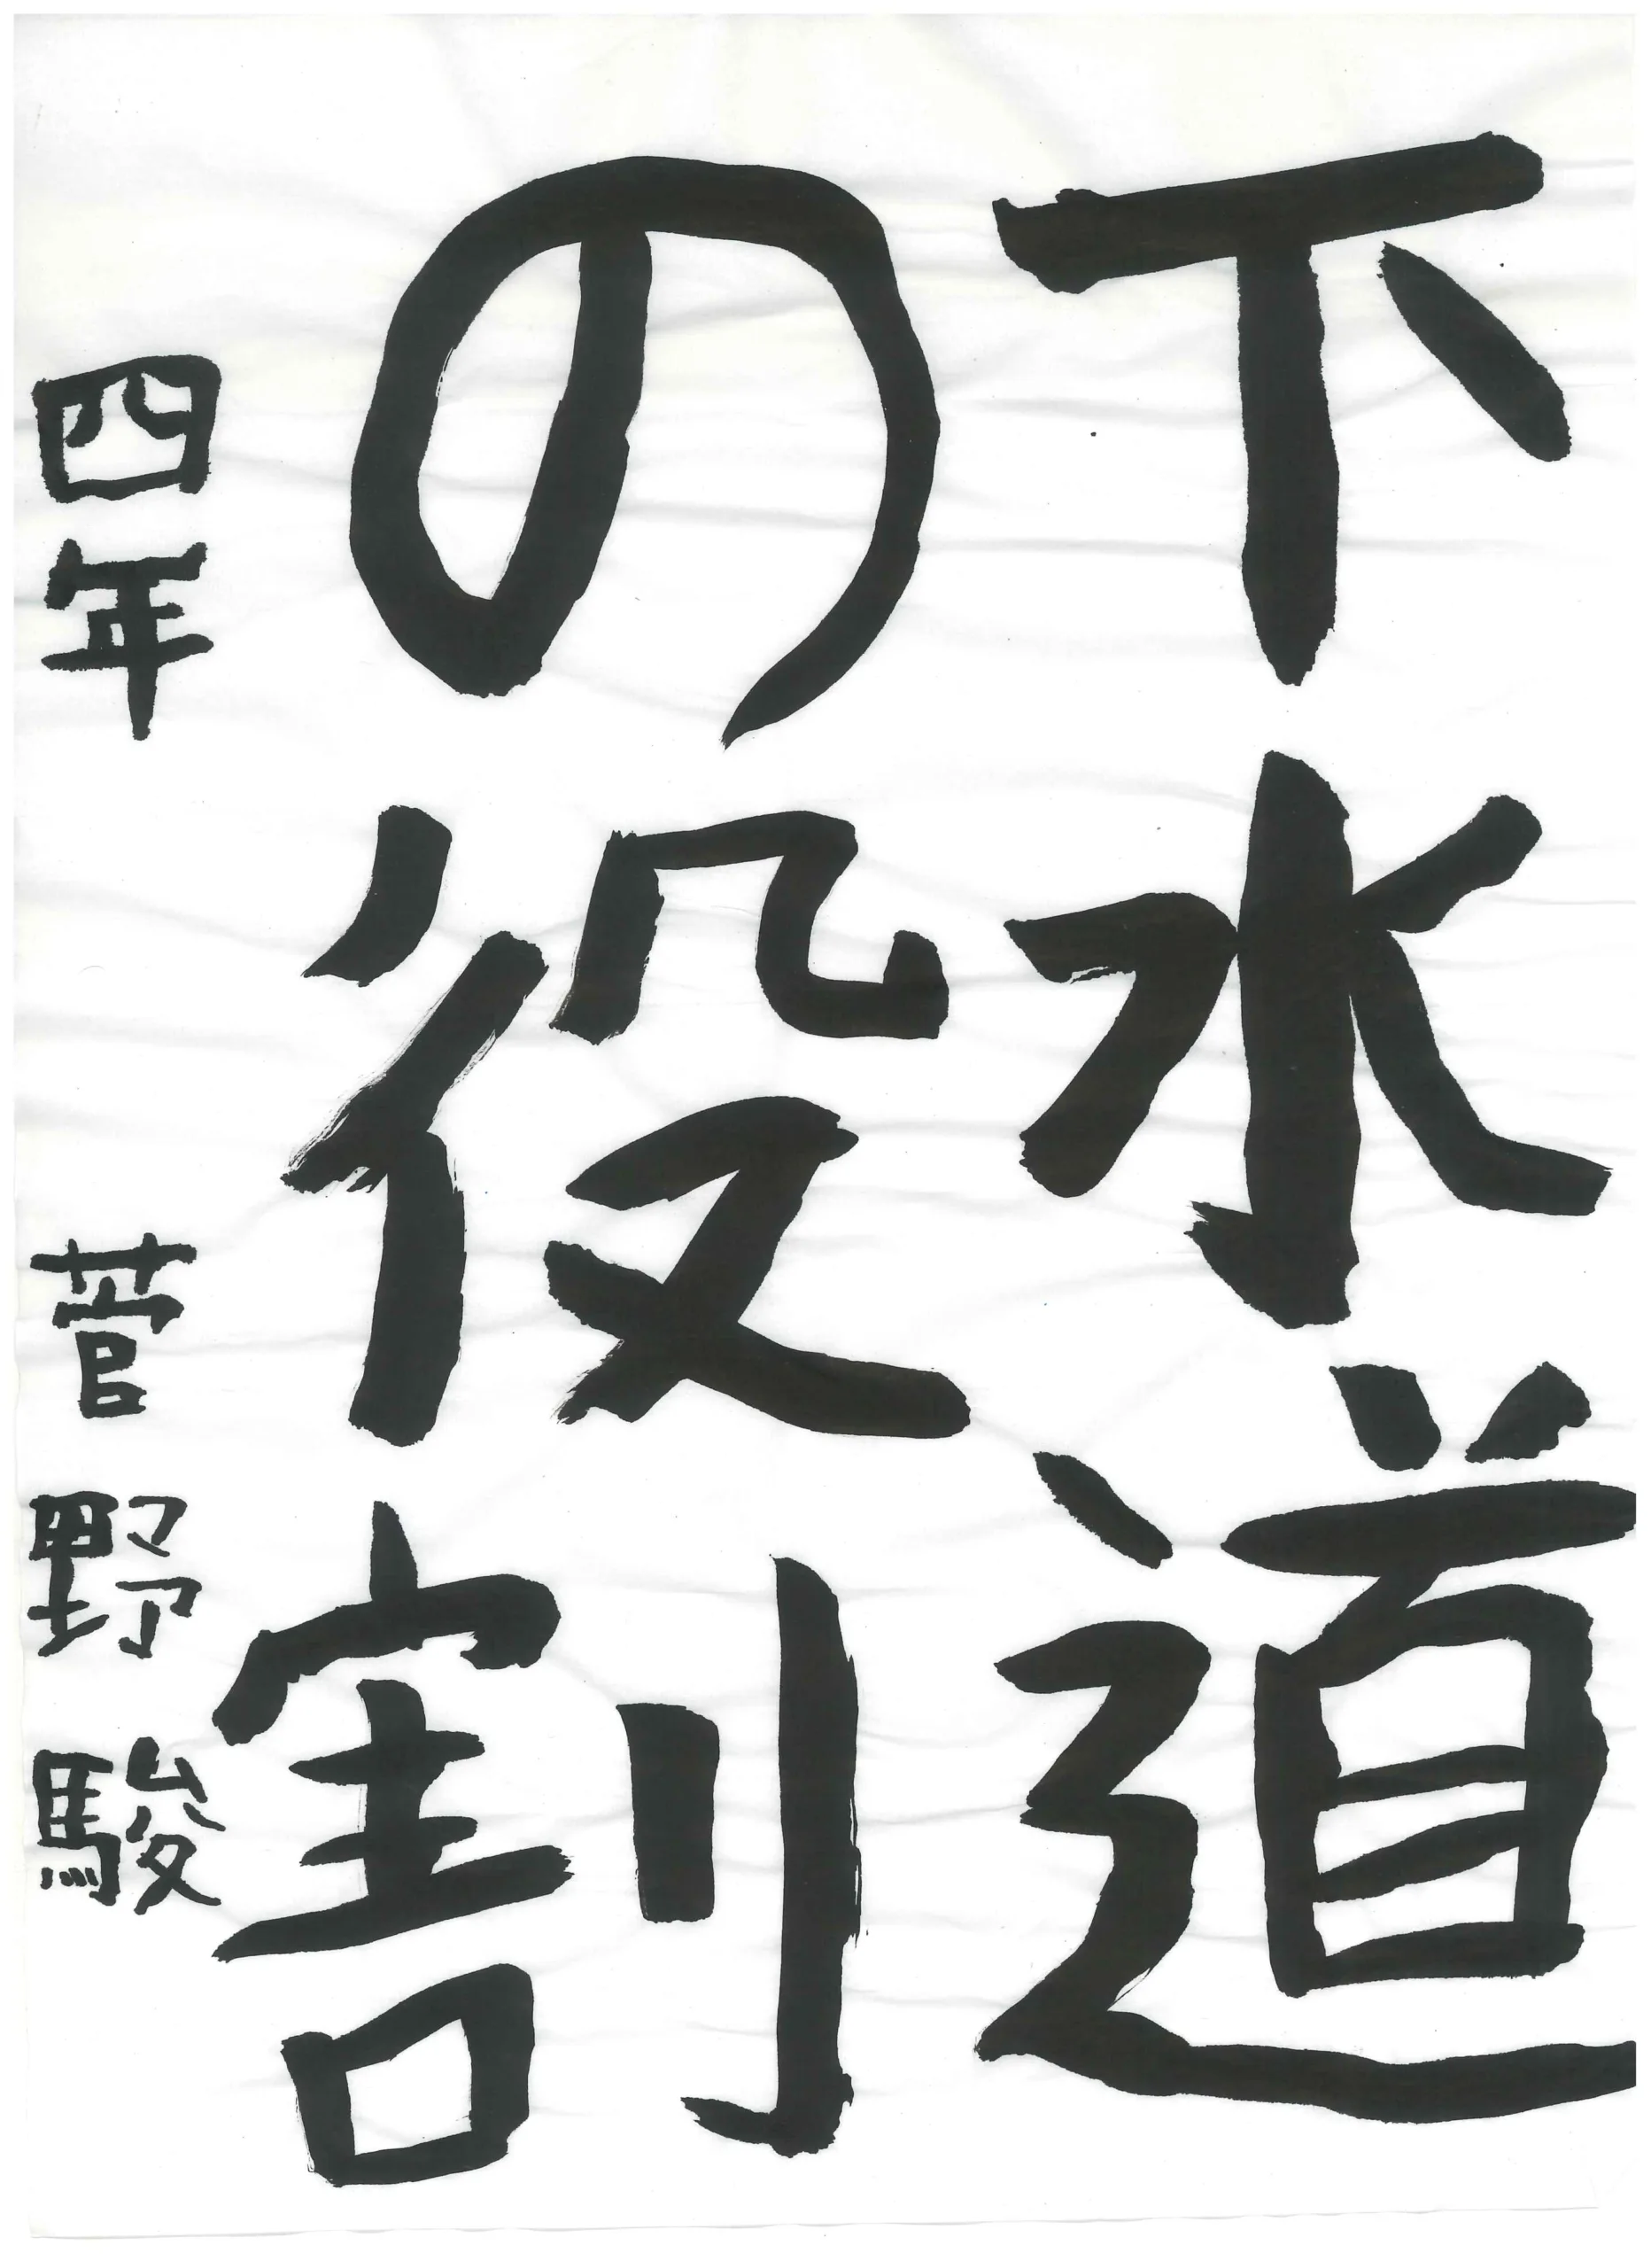 下水道
の役割
四年 菅野駿